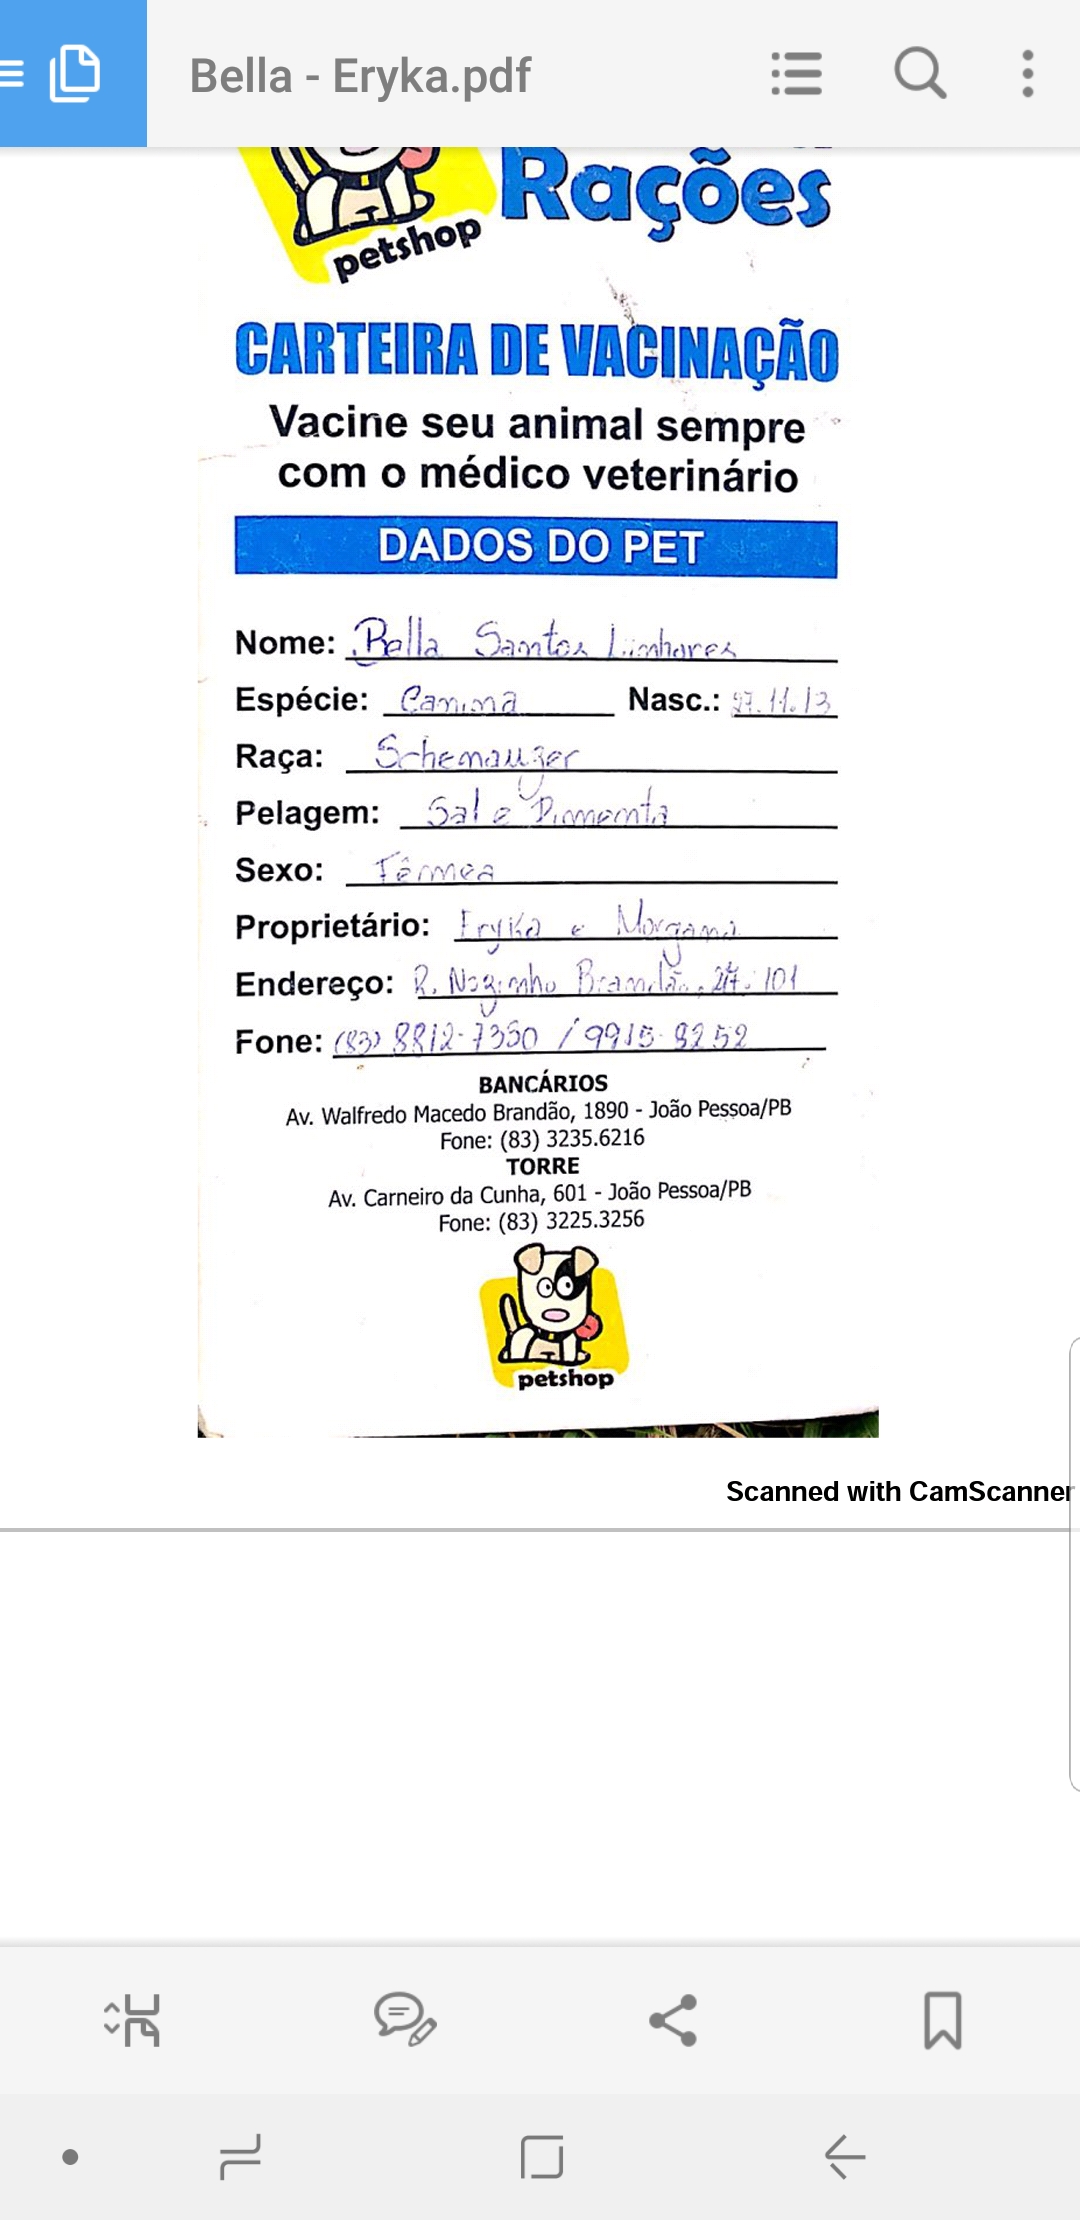 Bella - Eryka.pdf
Rações
petshop
CARTEIRA DE VACINAÇÃO
Vacine seu animal sempre
com o médico veterinário
DADOS DO PET
Nome: Bella Santos Linhares
Espécie: Canina Nasc.: 27.11.13
Raça: Schenauzer
Pelagem: Sal e Pimenta
Sexo: Fêmea
Proprietário: Eryka e Morgana
Endereço: R. Nozinho Brandão, 101
Fone: (83) 8812-7350 / 9915-8252
BANCÁRIOS
Av. Walfredo Macedo Brandão, 1890 - João Pessoa/PB
Fone: (83) 3235.6216
TORRE
Av. Carneiro da Cunha, 601 - João Pessoa/PB
Fone: (83) 3225.3256
petshop
Scanned with CamScanner